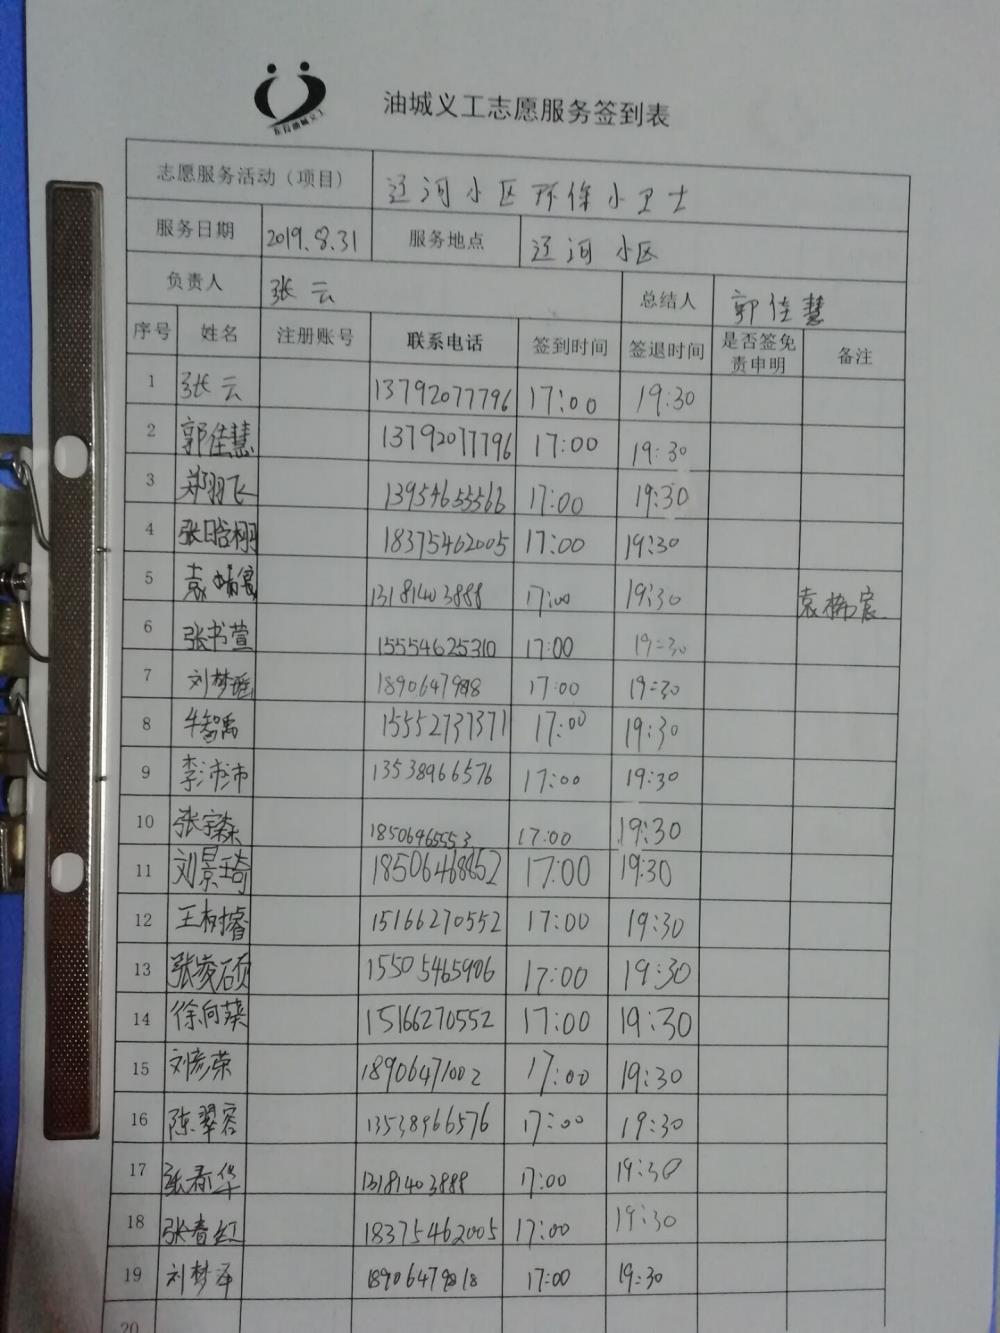 东营油城义工
油城义工志愿服务签到表
志愿服务活动（项目） 辽河小区环保小卫士
服务日期 2019.8.31 服务地点 辽河小区
负责人 张云 总结人 郭佳慧
序号 姓名 注册账号 联系电话 签到时间 签退时间 是否签免责申明 备注
1 张云 13792077796 17:00 19:30
2 郭佳慧 13792077796 17:00 19:30
3 郑羽飞 13954655566 17:00 19:30
4 张晗栩 18375462005 17:00 19:30
5 13181403888 17:00 19:30
6 张书萱 15554625310 17:00 19:30
7 刘梦瑶 17:00 19:30
8 牛智禹 15552737371 17:00 19:30
9 李沛沛 13538966576 17:00 19:30
10 张宇森 18506465553 17:00 19:30
11 刘景琦 17:00 19:30
12 王树睿 15166270552 17:00 19:30
13 张凌硕 15505465906 17:00 19:30
14 徐向葵 15166270552 17:00 19:30
15 刘彦荣 18906471002 17:00 19:30
16 陈翠容 13538966576 17:00 19:30
17 张春华 13181403888 17:00 19:30
18 张春红 18375462005 17:00 19:30
19 刘梦泽 18906479818 17:00 19:30
20